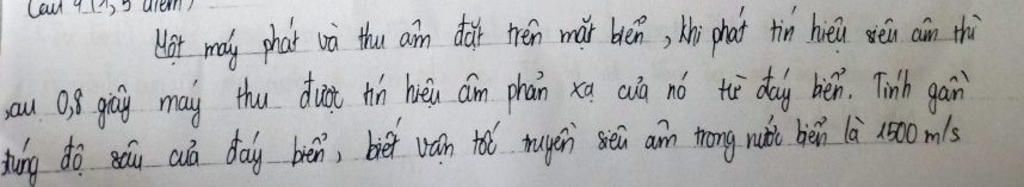 Câu 4 (1,5 điểm)
Một máy phát và thu âm đặt trên mặt biển, khi phát tín hiệu siêu âm thì
sau 0,8 giây máy thu được tín hiệu âm phản xạ của nó từ đáy biển. Tính gần
đúng độ sâu của đáy biển, biết vận tốc truyền siêu âm trong nước biển là 1500 m/s